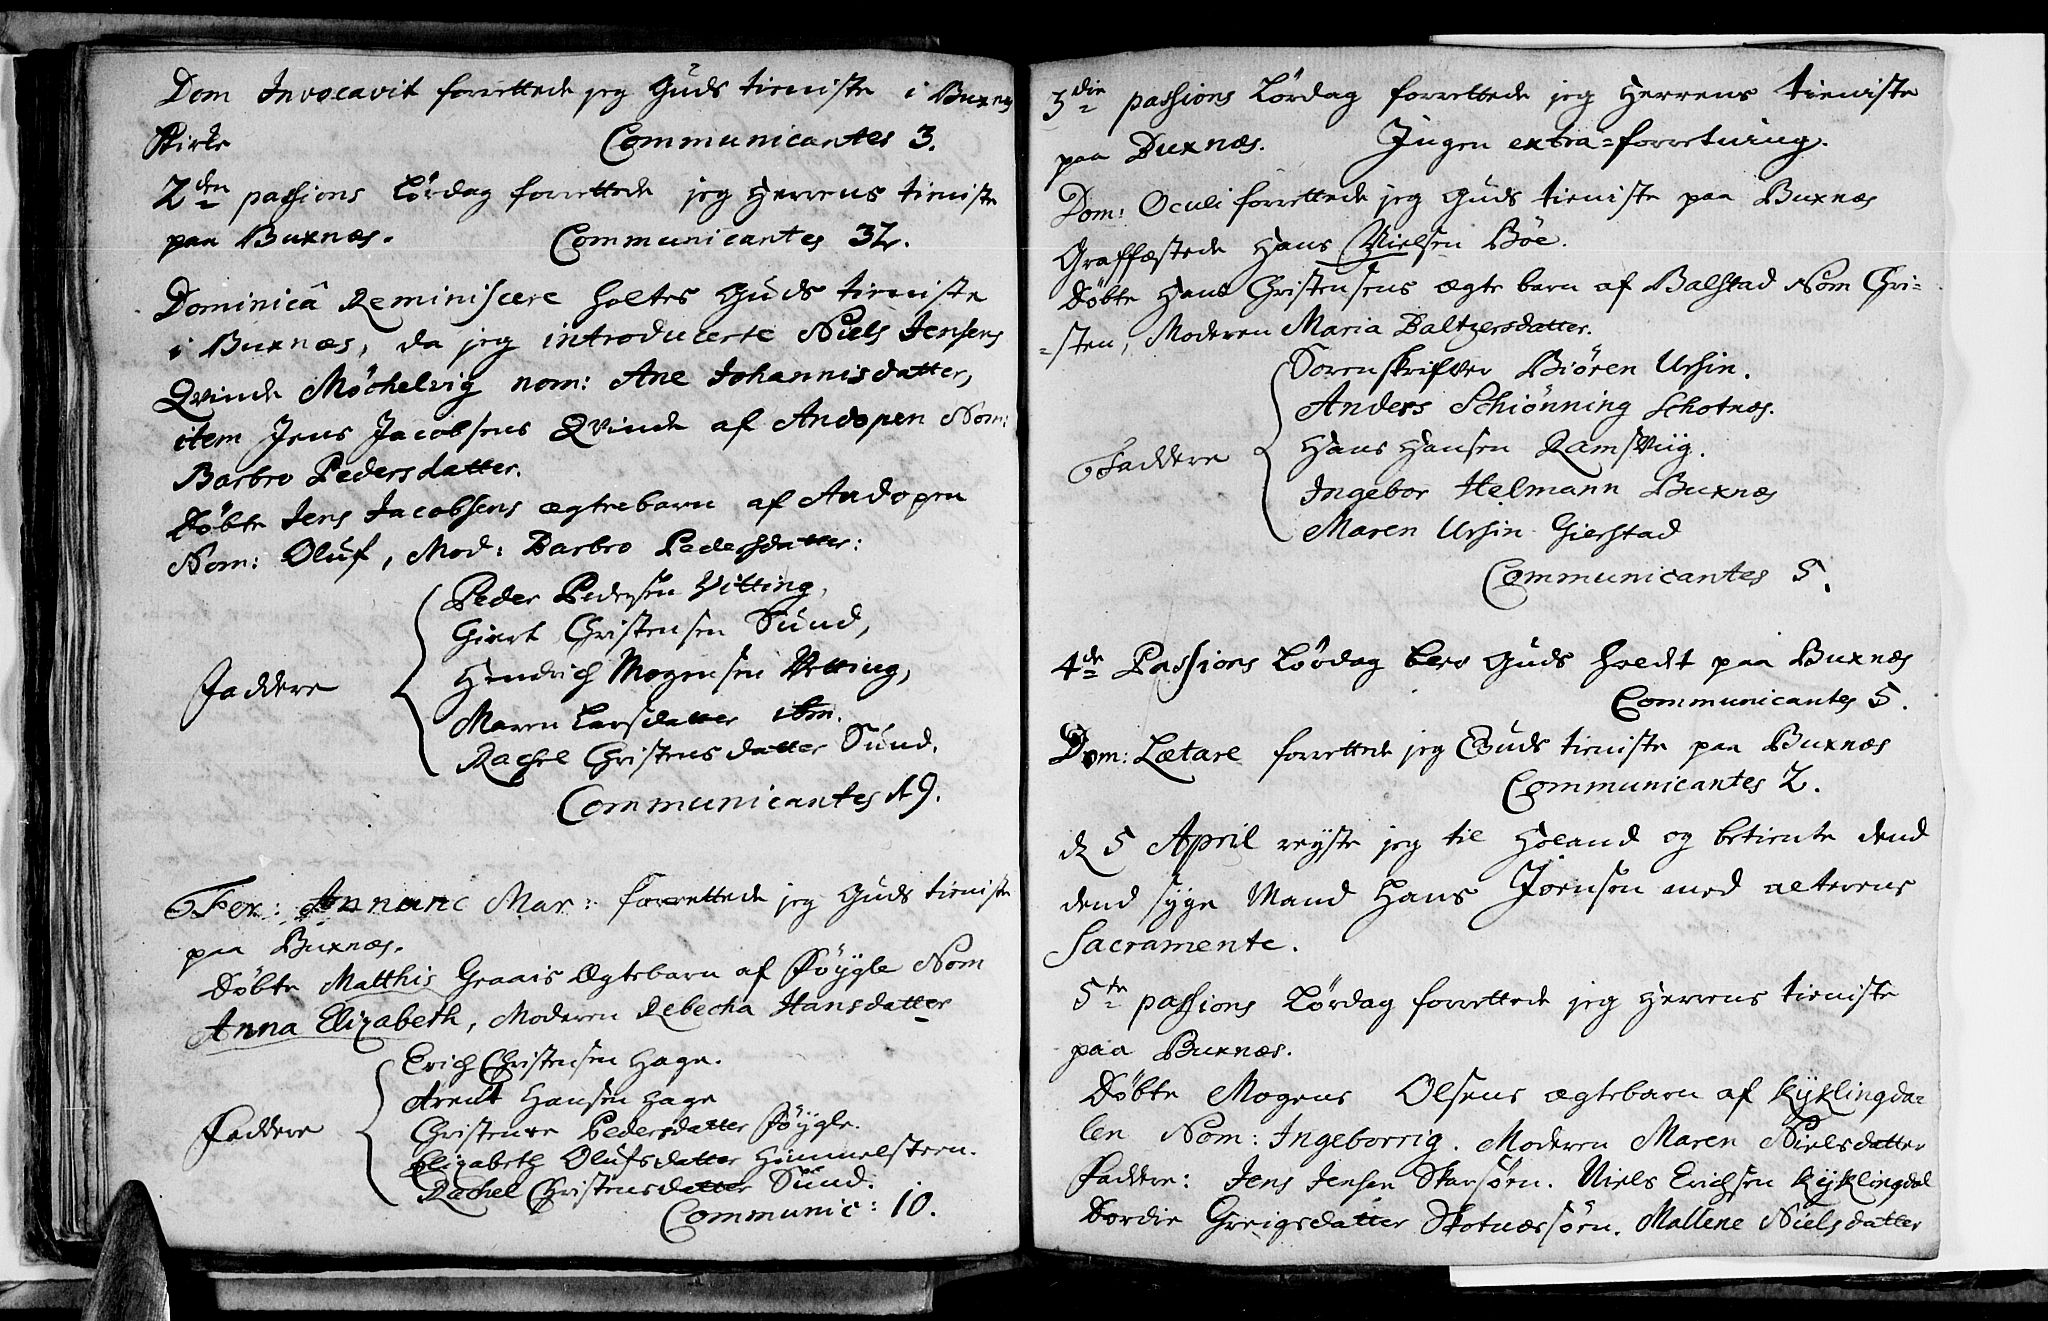 Dom Invocavit forrettede jeg Guds tieniste i Buxnæs
Kirke Communicantes 3.
2den passions Lördag forrettede jeg Herrens tieniste
paa Buxnæs. Communicantes 32.
Dominicâ Reminiscere holtes Guds tieniste
i Buxnæs, da jeg introducerte Niels Jensens
Qvinde Möchelvig nom: Ane Johannisdatter,
item Jens Jacobsens Qvinde af Andopen Nom:
Barbro Pedersdatter.
Döbte Jens Jacobsens ægtebarn af Andopen
Nom: Oluf, Mod: Barbro Pedersdatter:
Peder Pedersen Vitting,
Giert Christensen Sund,
Hendrich Mogensen Vetting,
Faddere
Maren Larsdatter ibm.
Rachel Christensdatter Sund.
Communicantes 19.
Fer: Annunc Mar: forrettede jeg Guds tieniste
paa Buxnæs.
Döbte Matthis Graais Ægtebarn af Föygle Nom
Anna Elizabeth, Moderen Rebecha Hansdatter
Erich Christensen Hage.
Arent Hansen Hage
Faddere
Christence Pedersdatter Föygle.
Elizabeth Olufsdatter Himmelsteen.
Rachel Christensdatter Sund.
Communic: 10.
3die passions Lördag forrettede jeg Herrens tieniste
paa Buxnæs. Ingen extra=forretning.
Dom: Oculi forrettede jeg Guds tieniste paa Buxnæs
Graffæstede Hans Nielsen Böe.
Döbte Hans Christensens ægte barn af Balstad Nom Chri=
=sten, Moderen Maria Baltzersdatter.
Sorenskrifver Biören Ursin.
Anders Schiönning Schotnæs.
Faddere
Hans Hansen Ramsviig.
Ingebor Helmann Buxnæs
Maren Ursin Gierstad
Communicantes 5.
4de Passions Lördag blev Guds holdt paa Buxnæs
Communicantes 5.
Dom: Lætare forrettede jeg Guds tieniste paa Buxnæs
Communicantes 2.
d 5 April reyste jeg til Holand og betiente dend
dend syge Mand Hans Joensen med alterens
Sacramente.
5te passions Lördag forrettede jeg Herrens tieniste
paa Buxnæs.
Döbte Mogens Olsens ægtebarn af Kyklingda=
len Nom: Ingeborrig. Moderen Maren Nielsdatter
Faddere: Jens Jensen Skarsören. Niels Erichsen Kyklingdal
Dordie Greigsdatter Skotnæssörn. Mallene Nielsdatter